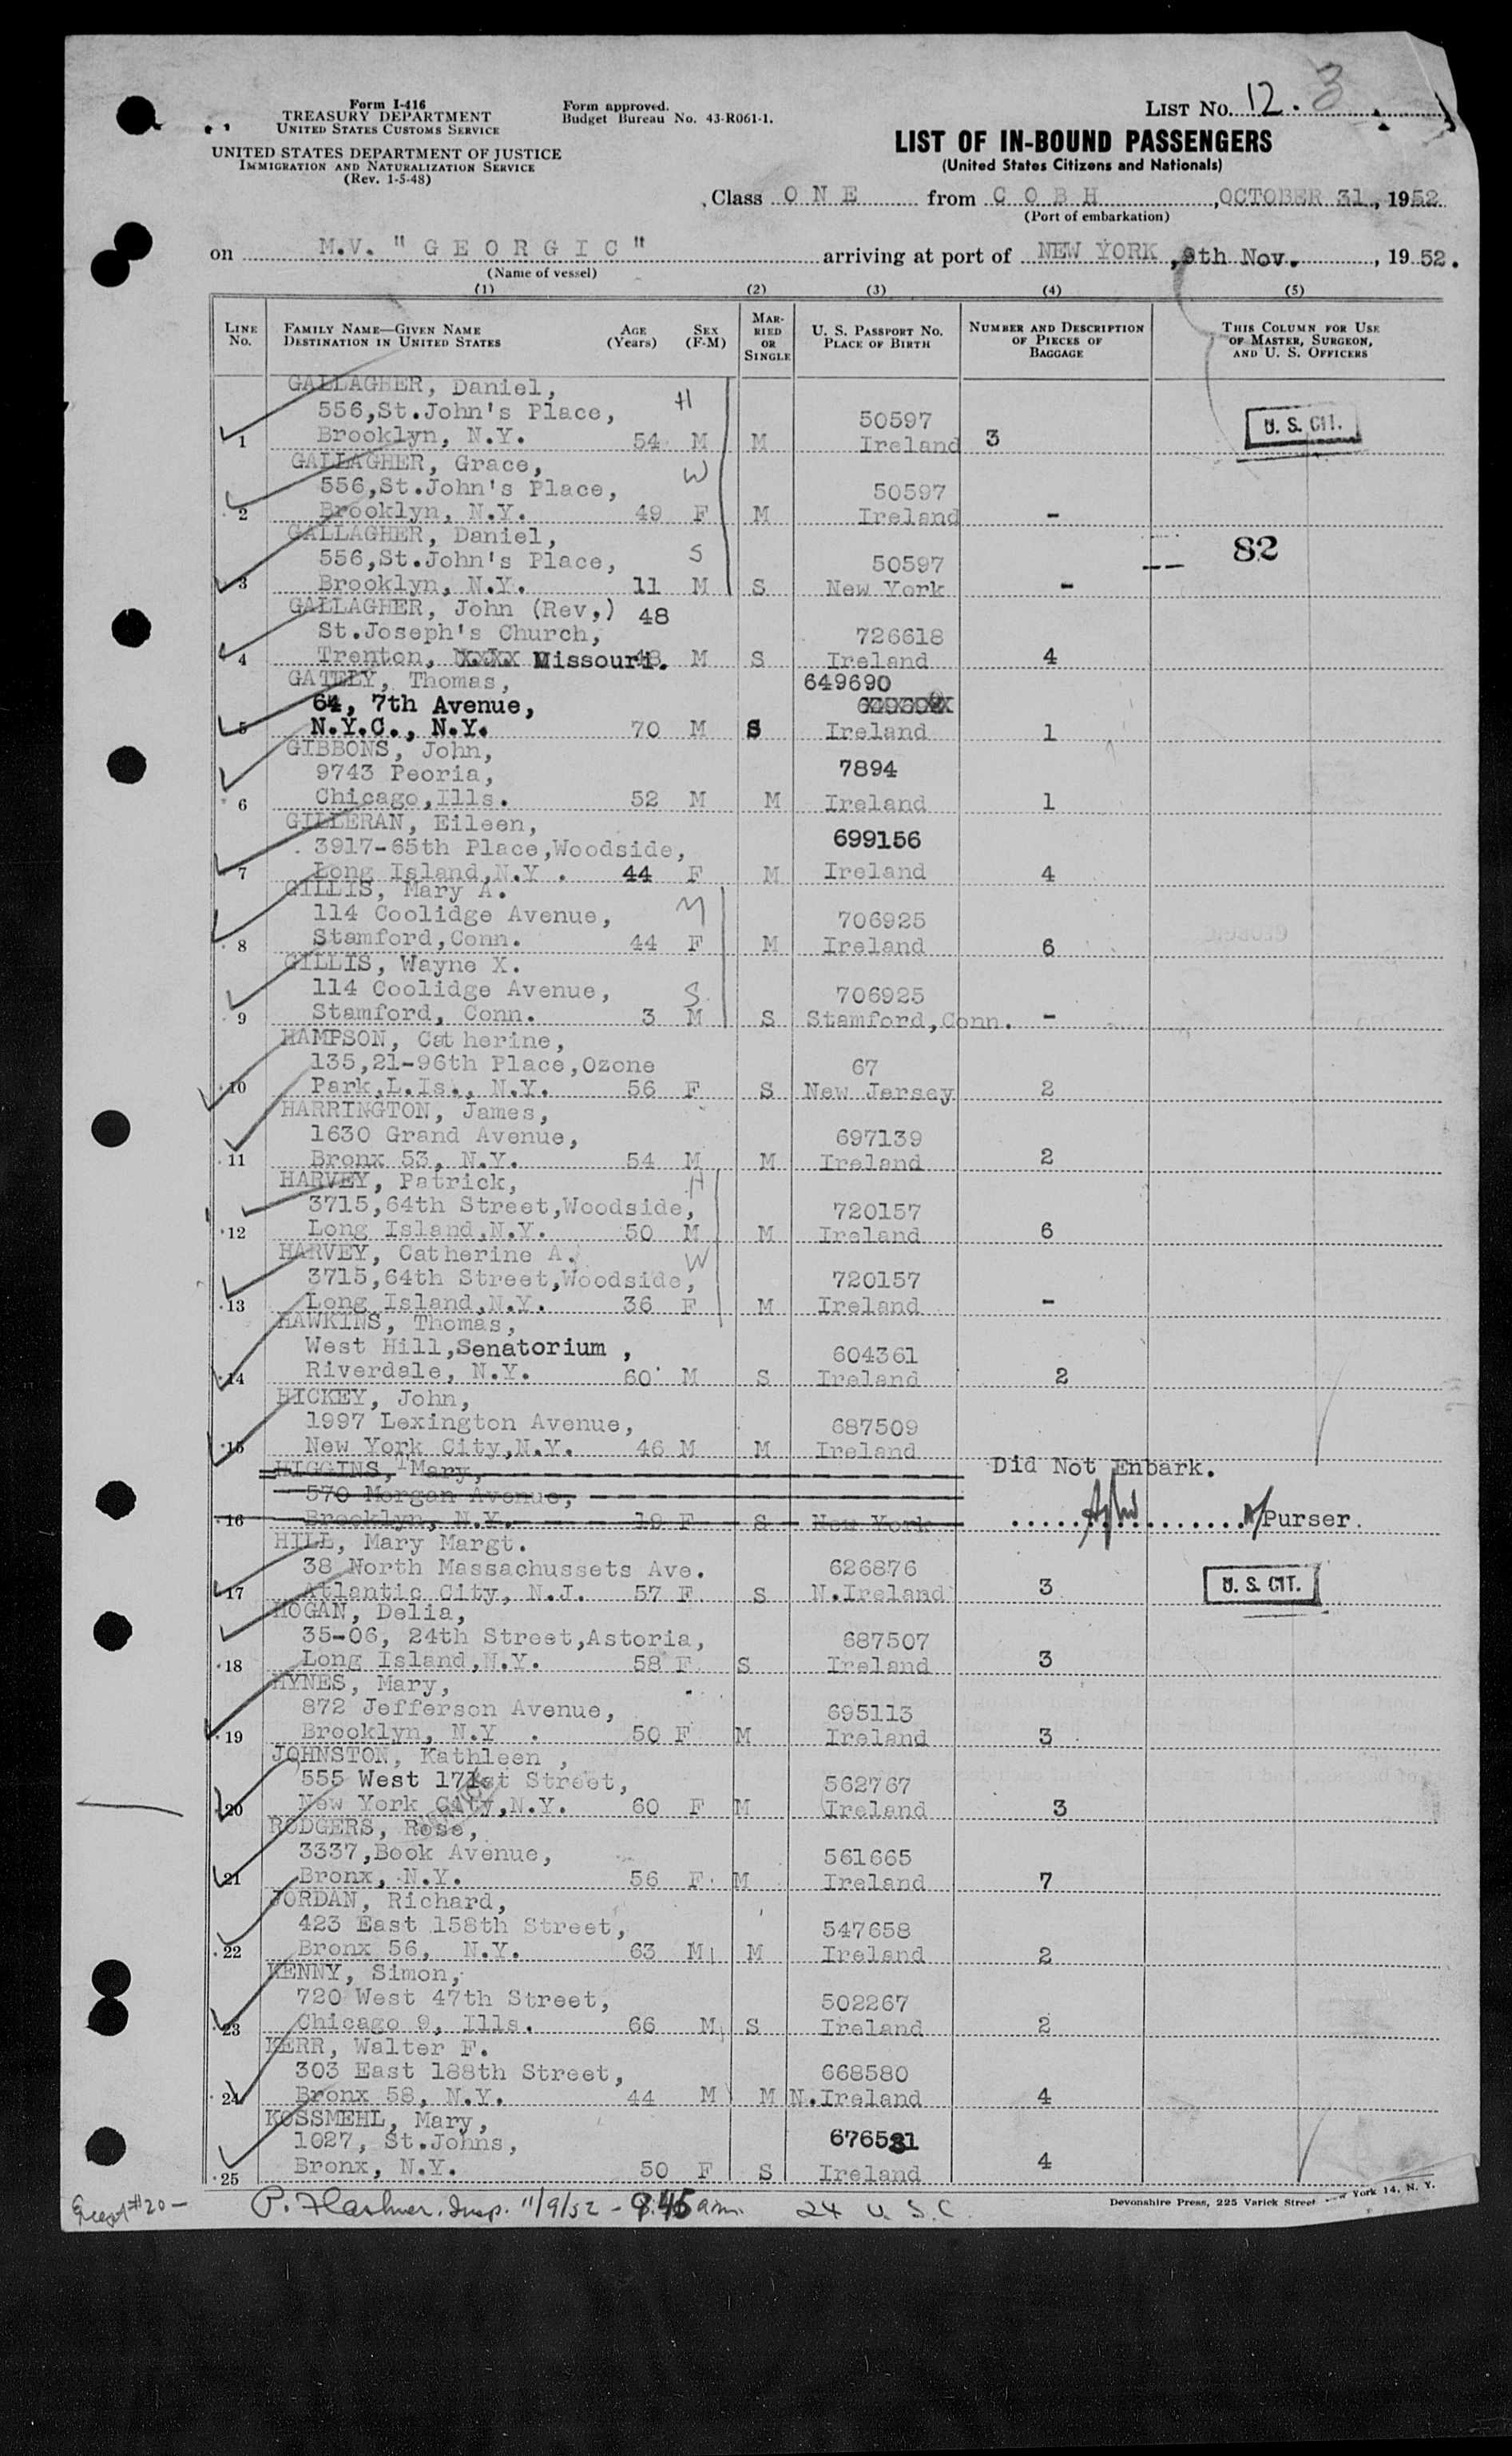 Form I-416
TREASURY DEPARTMENT
UNITED STATES CUSTOMS SERVICE
UNITED STATES DEPARTMENT OF JUSTICE
IMMIGRATION AND NATURALIZATION SERVICE
(Rev. 1-5-48)
Form approved.
Budget Bureau No. 43-R061-1.
LIST No. 12. 3
LIST OF IN-BOUND PASSENGERS
(United States Citizens and Nationals)
Class ONE from COBH, OCTOBER 31, 1952
(Port of embarkation)
on M.V. "GEORGIC" arriving at port of NEW YORK, 9th Nov., 1952.
(Name of vessel)
(1) (2) (3) (4) (5)
LINE No. FAMILY NAME—GIVEN NAME DESTINATION IN UNITED STATES AGE (Years) SEX (F-M) MARRIED OR SINGLE U. S. PASSPORT No. PLACE OF BIRTH NUMBER AND DESCRIPTION OF PIECES OF BAGGAGE THIS COLUMN FOR USE OF MASTER, SURGEON, AND U. S. OFFICERS
GALLAGHER, Daniel,
556,St.John's Place, H 50597 U. S. CIT.
1 Brooklyn, N.Y. 54 M M Ireland 3
GALLAGHER, Grace,
556,St.John's Place, W 50597
2 Brooklyn, N.Y. 49 F M Ireland -
GALLAGHER, Daniel,
556,St.John's Place, S 50597 82
3 Brooklyn, N.Y. 11 M S New York -
GALLAGHER, John (Rev,) 48
St.Joseph's Church, 726618
4 Trenton, Missouri. 48 M S Ireland 4
GATELY, Thomas, 649690
64, 7th Avenue,
5 N.Y.C., N.Y. 70 M S Ireland 1
GIBBONS, John,
9743 Peoria, 7894
6 Chicago,Ills. 52 M M Ireland 1
GILLERAN, Eileen,
3917-65th Place,Woodside, 699156
7 Long Island,N.Y. 44 F M Ireland 4
GILLIS, Mary A.
114 Coolidge Avenue, M 706925
8 Stamford,Conn. 44 F M Ireland 6
GILLIS, Wayne X.
114 Coolidge Avenue, S. 706925
9 Stamford, Conn. 3 M S Stamford,Conn. -
HAMPSON, Catherine,
135,21-96th Place,Ozone 67
10 Park,L.Is., N.Y. 56 F S New Jersey 2
HARRINGTON, James,
1630 Grand Avenue, 697139
11 Bronx 53, N.Y. 54 M M Ireland 2
HARVEY, Patrick, H
3715,64th Street,Woodside, 720157
12 Long Island,N.Y. 50 M M Ireland 6
HARVEY, Catherine A. W
3715,64th Street,Woodside, 720157
13 Long Island,N.Y. 36 F M Ireland -
HAWKINS, Thomas,
West Hill,Senatorium , 604361
14 Riverdale, N.Y. 60 M S Ireland 2
HICKEY, John,
1997 Lexington Avenue, 687509
15 New York City,N.Y. 46 M M Ireland
HIGGINS, Mary, Did Not Enbark.
570 Morgan Avenue,
16 Brooklyn, N.Y. 19 F S New York Purser.
HILL, Mary Margt.
38 North Massachussets Ave. 626876
17 Atlantic City, N.J. 57 F S N.Ireland 3 U. S. CIT.
HOGAN, Delia,
35-06, 24th Street,Astoria, 687507
18 Long Island,N.Y. 58 F S Ireland 3
HYNES, Mary,
872 Jefferson Avenue, 695113
19 Brooklyn, N.Y . 50 F M Ireland 3
JOHNSTON, Kathleen ,
555 West 171st Street, 562767
20 New York City,N.Y. 60 F M Ireland 3
RODGERS, Rose,
3337,Book Avenue, 561665
21 Bronx, N.Y. 56 F M Ireland 7
JORDAN, Richard,
423 East 158th Street, 547658
22 Bronx 56, N.Y. 63 M M Ireland 2
KENNY, Simon,
720 West 47th Street, 502267
23 Chicago 9, Ills. 66 M S Ireland 2
KERR, Walter F.
303 East 188th Street, 668580
24 Bronx 58, N.Y. 44 M M N.Ireland 4
KOSSMEHL, Mary,
1027, St.Johns, 676531
25 Bronx, N.Y. 50 F S Ireland 4
Except #20- Insp. 11/9/52 - 9:45 am. 24 U. S. C.
Devonshire Press, 225 Varick Street York 14, N. Y.